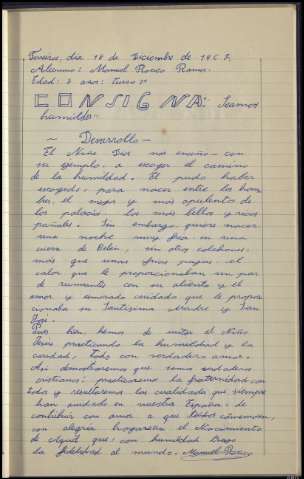 día 18 de Diciembre de 19
Alumno: Manuel Ramos
Edad: 9 años: Curso 2º
CONSIGNA: Seamos
humildes"
~ Desarrollo ~
El Niño Dios nos enseñó con
su ejemplo, a escoger el camino
de la humildad. El pudo haber
escogido, para nacer entre los hom
bres, el mejor y más opulento de
los palacios, los más bellos y ricos
pañales. Sin embargo, quiso nacer
una noche muy fría en una
cueva de Belén, sin otros colchones,
más que unas pajas, el
calor que le proporcionaban un par
de con su aliento y el
amor y cuidado que le propor
cionaba su Santísima Madre y San
José.
Pues bien hemos de imitar al Niño
Jesús practicando la humildad y la
caridad. Todo con verdadero amor.
Así demostraremos que somos verdaderos
cristianos: practicaremos la fraternidad con
todo y las cualidades que siempre
han en nuestra España: de
contribuir con amor a que todos conserven,
con alegría el Nacimiento
de Aquel que con humildad trajo
la felicidad al mundo. Manuel